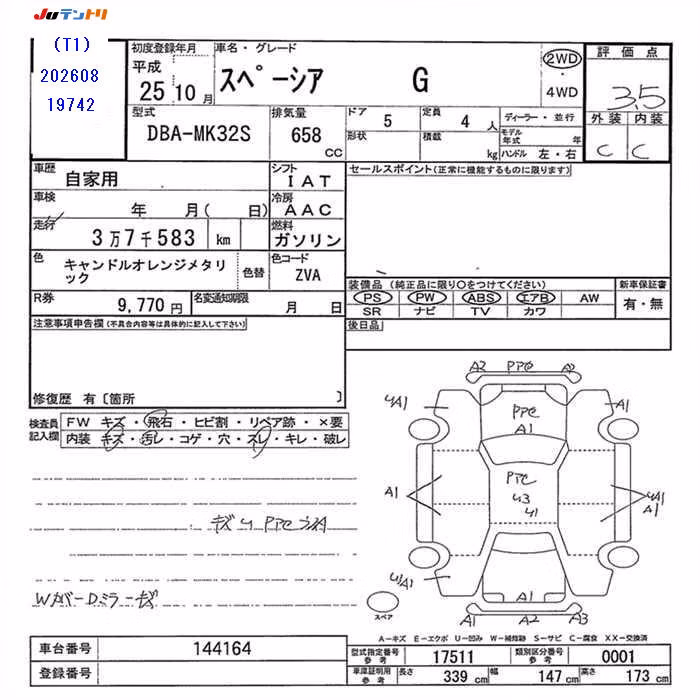 Juテントリ
(T1)
202608
19742
初度登録年月
平成
25 10 月
車名・グレード
スペーシア G
2WD
・
4WD
評価点
3.5
外装 内装
C C
型式
DBA-MK32S
排気量
658
CC
ドア 5
定員 4 人
形状
積載 kg
ディーラー・並行
モデル年式 年
ハンドル 左・右
車歴
自家用
シフト
IAT
車検
年 月( 日)
冷房
AAC
走行
3万7千583 km
燃料
ガソリン
色
キャンドルオレンジメタリ
ック
色替
色コード
ZVA
R券
9,770 円
名変通知期限
月 日
セールスポイント(正常に機能するものに限ります)
装備品 (純正品に限り○をつけてください)
PS PW ABS エアB AW
SR ナビ TV カワ
新車保証書
有・無
後日品
注意事項申告欄(不具合内容等は具体的に記入して下さい)
修復歴 有〔箇所 〕
検査員
記入欄
FW キズ・飛石・ヒビ割・リペア跡・×要
内装 キズ・汚レ・コゲ・穴・スレ・キレ・破レ
WカバーDミラーキズ
A2 PPC A2
A1
PPC
A1
A1
PPC
A1
A1
A1
A1 A2 A3
スペア
A-キズ E-エクボ U-凹み W-補修跡 S-サビ C-腐食 XX-交換済
車台番号
144164
登録番号
型式指定番号
参考
17511
類別区分番号
参考
0001
車庫証明用
参考
長さ 339 cm
幅 147 cm
高さ 173 cm